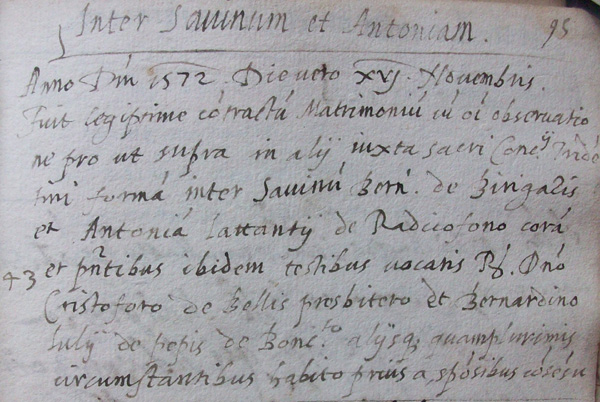 Inter Savinum et Antoniam. 95
Anno Dñi 1572. Die vero XVJ. Novembris.
Fuit legiptime cótractú Matrimoniú cú oí observatio
ne pro ut supra in alij iuxta sacri Conc.ij Tridé
tini formá inter Savinú Bern. de Birigalis
et Antoniá Lattantij de Radicofono corá
43 et pñtibus ibidem testibus vocatis R.do Dño
Cristoforo de Bellis presbitero et Bernardino
Iulij de pepis de Bonc.to alijsq; quamplurimis
circumstantibus habito prius a spósibus cósésu